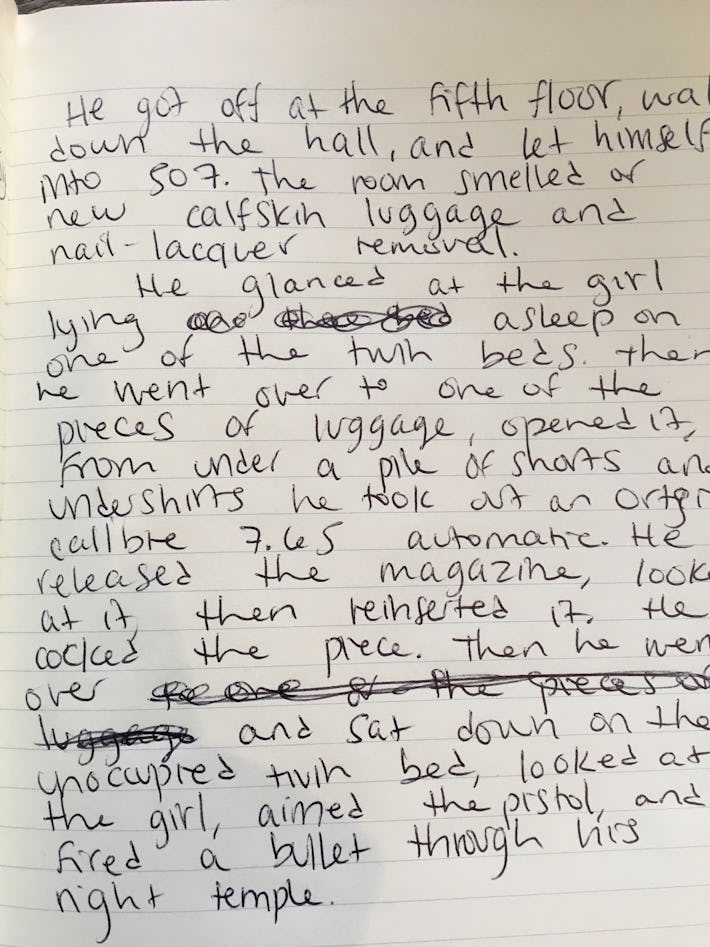 He got off at the fifth floor, wal
down the hall, and let himself
into 507. The room smelled of
new calfskin luggage and
nail-lacquer removal.
He glanced at the girl
lying asleep on
one of the twin beds. Then
he went over to one of the
pieces of luggage, opened it,
from under a pile of shorts and
undershirts he took out an Ortgi
calibre 7.65 automatic. He
released the magazine, look
at it, then reinserted it. He
cocked the piece. Then he wen
over to one of the pieces of
luggage and sat down on the
unocupied twin bed, looked at
the girl, aimed the pistol, and
fired a bullet through his
right temple.